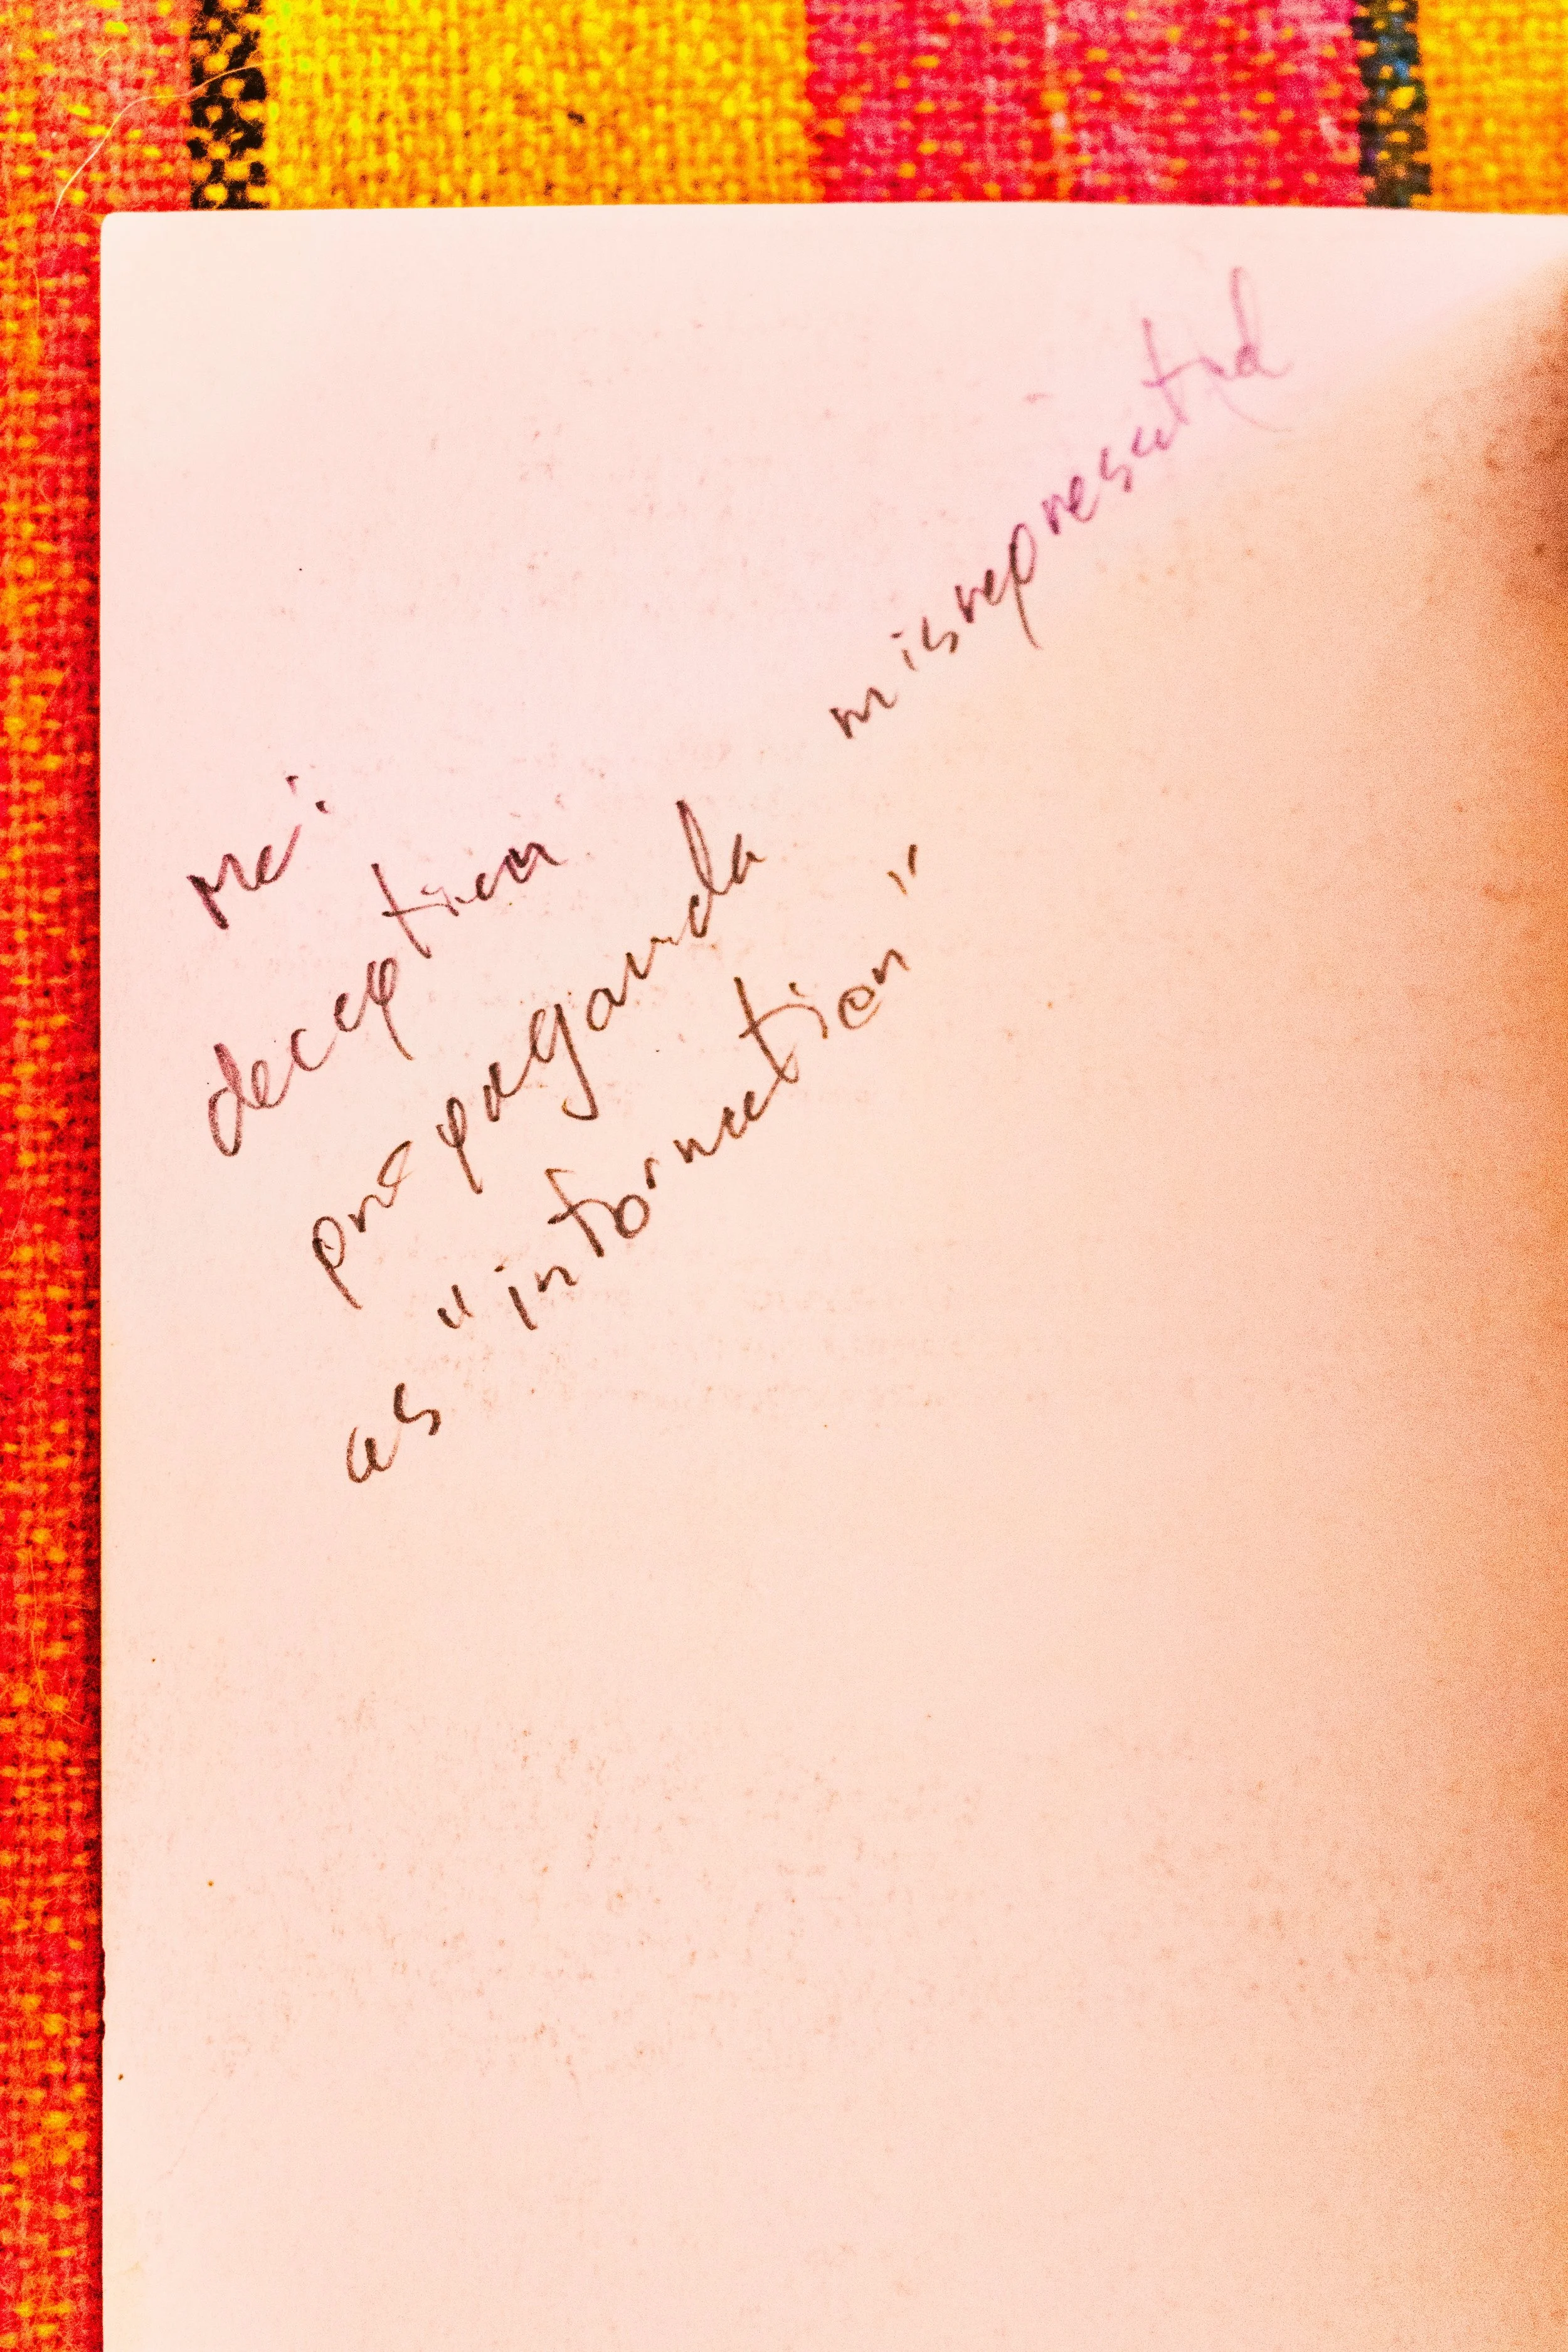 Me:
deception
propaganda misrepresented
as "information"